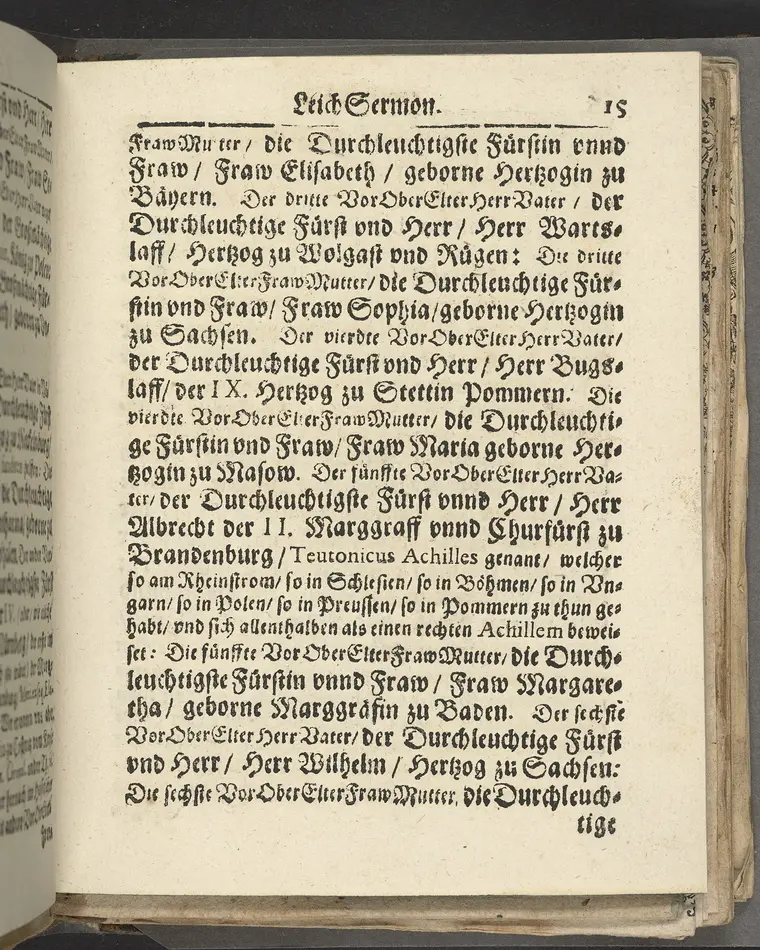 Leich Sermon. 15
Fraw Mutter / die Durchleuchtigste Fürstin vnnd
Fraw / Fraw Elisabeth / geborne Hertzogin zu
Bäyern. Der dritte VorOberElterHerrVater / der
Durchleuchtige Fürst vnd Herr / Herr Warts-
laff / Hertzog zu Wolgast vnd Rügen: Die dritte
VorOberElterFrawMutter / die Durchleuchtige Für-
stin vnd Fraw / Fraw Sophia / geborne Hertzogin
zu Sachsen. Der vierdte VorOberElterHerrVater /
der Durchleuchtige Fürst vnd Herr / Herr Bugs-
laff / der IX. Hertzog zu Stettin Pommern. Die
vierdte VorOberElterFrawMutter / die Durchleuchti-
ge Fürstin vnd Fraw / Fraw Maria geborne Her-
tzogin zu Masow. Der fünffte VorOberElterHerrVa-
ter / der Durchleuchtigste Fürst vnnd Herr / Herr
Albrecht der II. Marggraff vnnd Churfürst zu
Brandenburg / Teutonicus Achilles genant / welcher
so am Rheinstrom / so in Schlesien / so in Böhmen / so in Vn-
garn / so in Polen / so in Preussen / so in Pommern zu thun ge-
habt / vnd sich allenthalben als einen rechten Achillem bewei-
set: Die fünffte VorOberElterFrawMutter / die Durch-
leuchtigste Fürstin vnnd Fraw / Fraw Margare-
tha / geborne Marggräfin zu Baden. Der sechste
VorOberElterHerrVater / der Durchleuchtige Fürst
vnd Herr / Herr Wilhelm / Hertzog zu Sachsen:
Die sechste VorOberElterFrawMutter, die Durchleuch-
tige